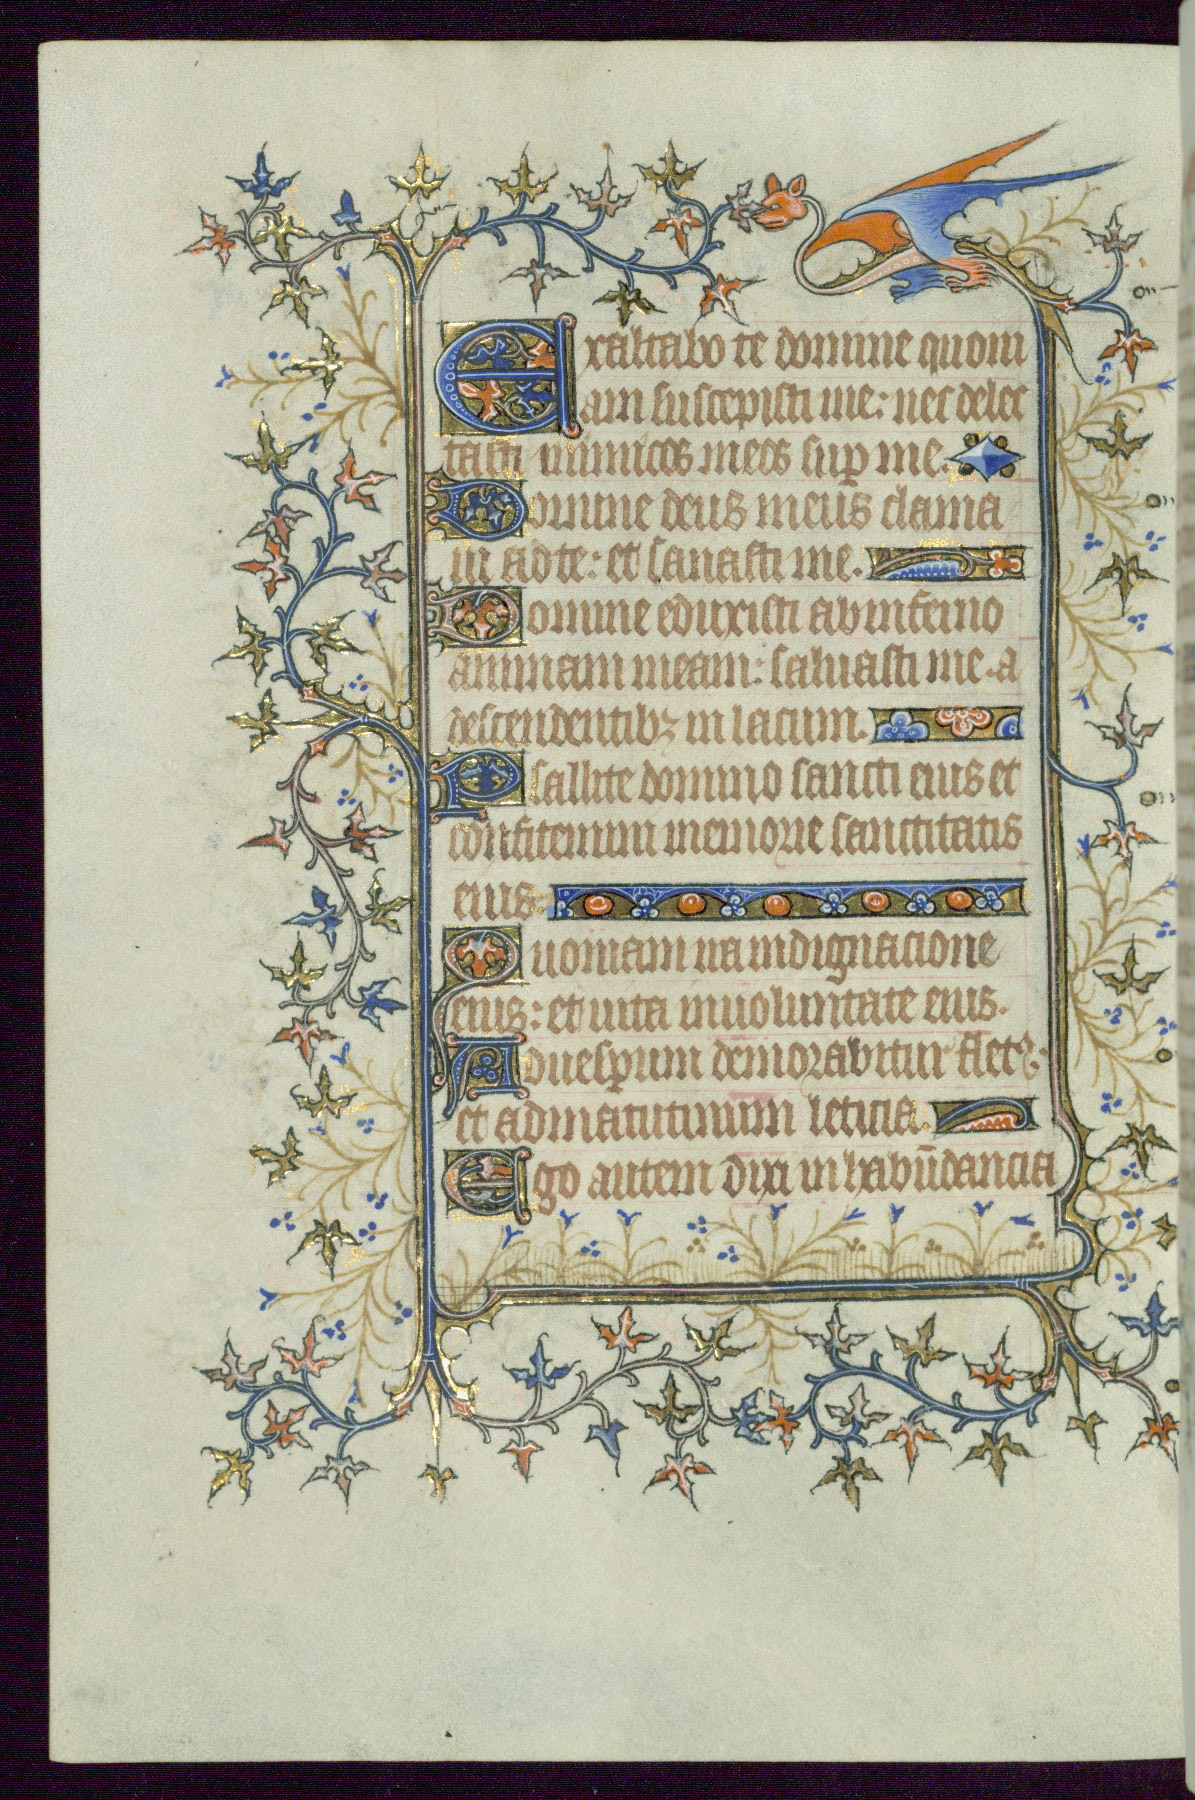 Exaltabo te domine quoni
am suscepisti me: nec delec
tasti inimicos meos sup me.
Domine deus meus clama
ui ad te: et sanasti me.
Domine eduxisti ab inferno
animam meam: saluasti me. a
descendentibꝫ in lacum.
Psallite domino sancti eius et
confitemini memorie sanctitatis
eius.
Quoniam ira in dignacione
eius: et uita in uoluntate eius.
Ad uesꝑum demorabitur flet9:
et ad matutinum leticia.
Ego autem dixi in habūdancia